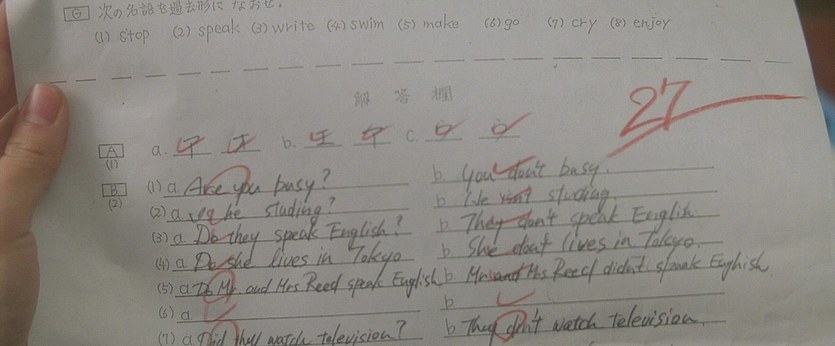 G 次の名詞を過去形になおせ.
(1) stop (2) speak (3) write (4) swim (5) make (6) go (7) cry (8) enjoy
解答欄
27
A (1) a. b. c.
B (2) (1) a Are you busy? b You don't busy.
(2) a he studing? b studing.
(3) a Do they speak English? b They don't speak English
(4) a Do she lives in Tokyo b She dont lives in Tokyo.
(5) a Do Mr. and Mrs Reed speak English b Mr and Mrs Reed didn't speak English.
(6) a b
(7) a Did they watch television? b They didn't watch television.